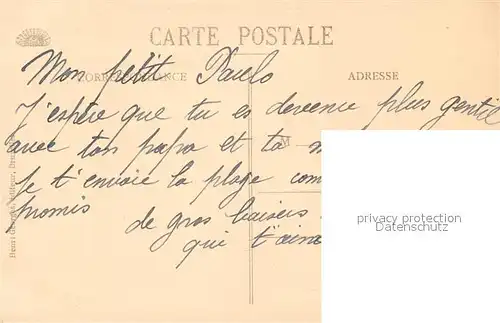 CARTE POSTALE
CORRESPONDANCE
ADRESSE
Mon petit Paulo
J'espère que tu es devenu plus gentil
avec ton papa et ta m
M
Je t'envoie la plage com
promis
de gros baisers
qui t'aime
privacy protection
Datenschutz